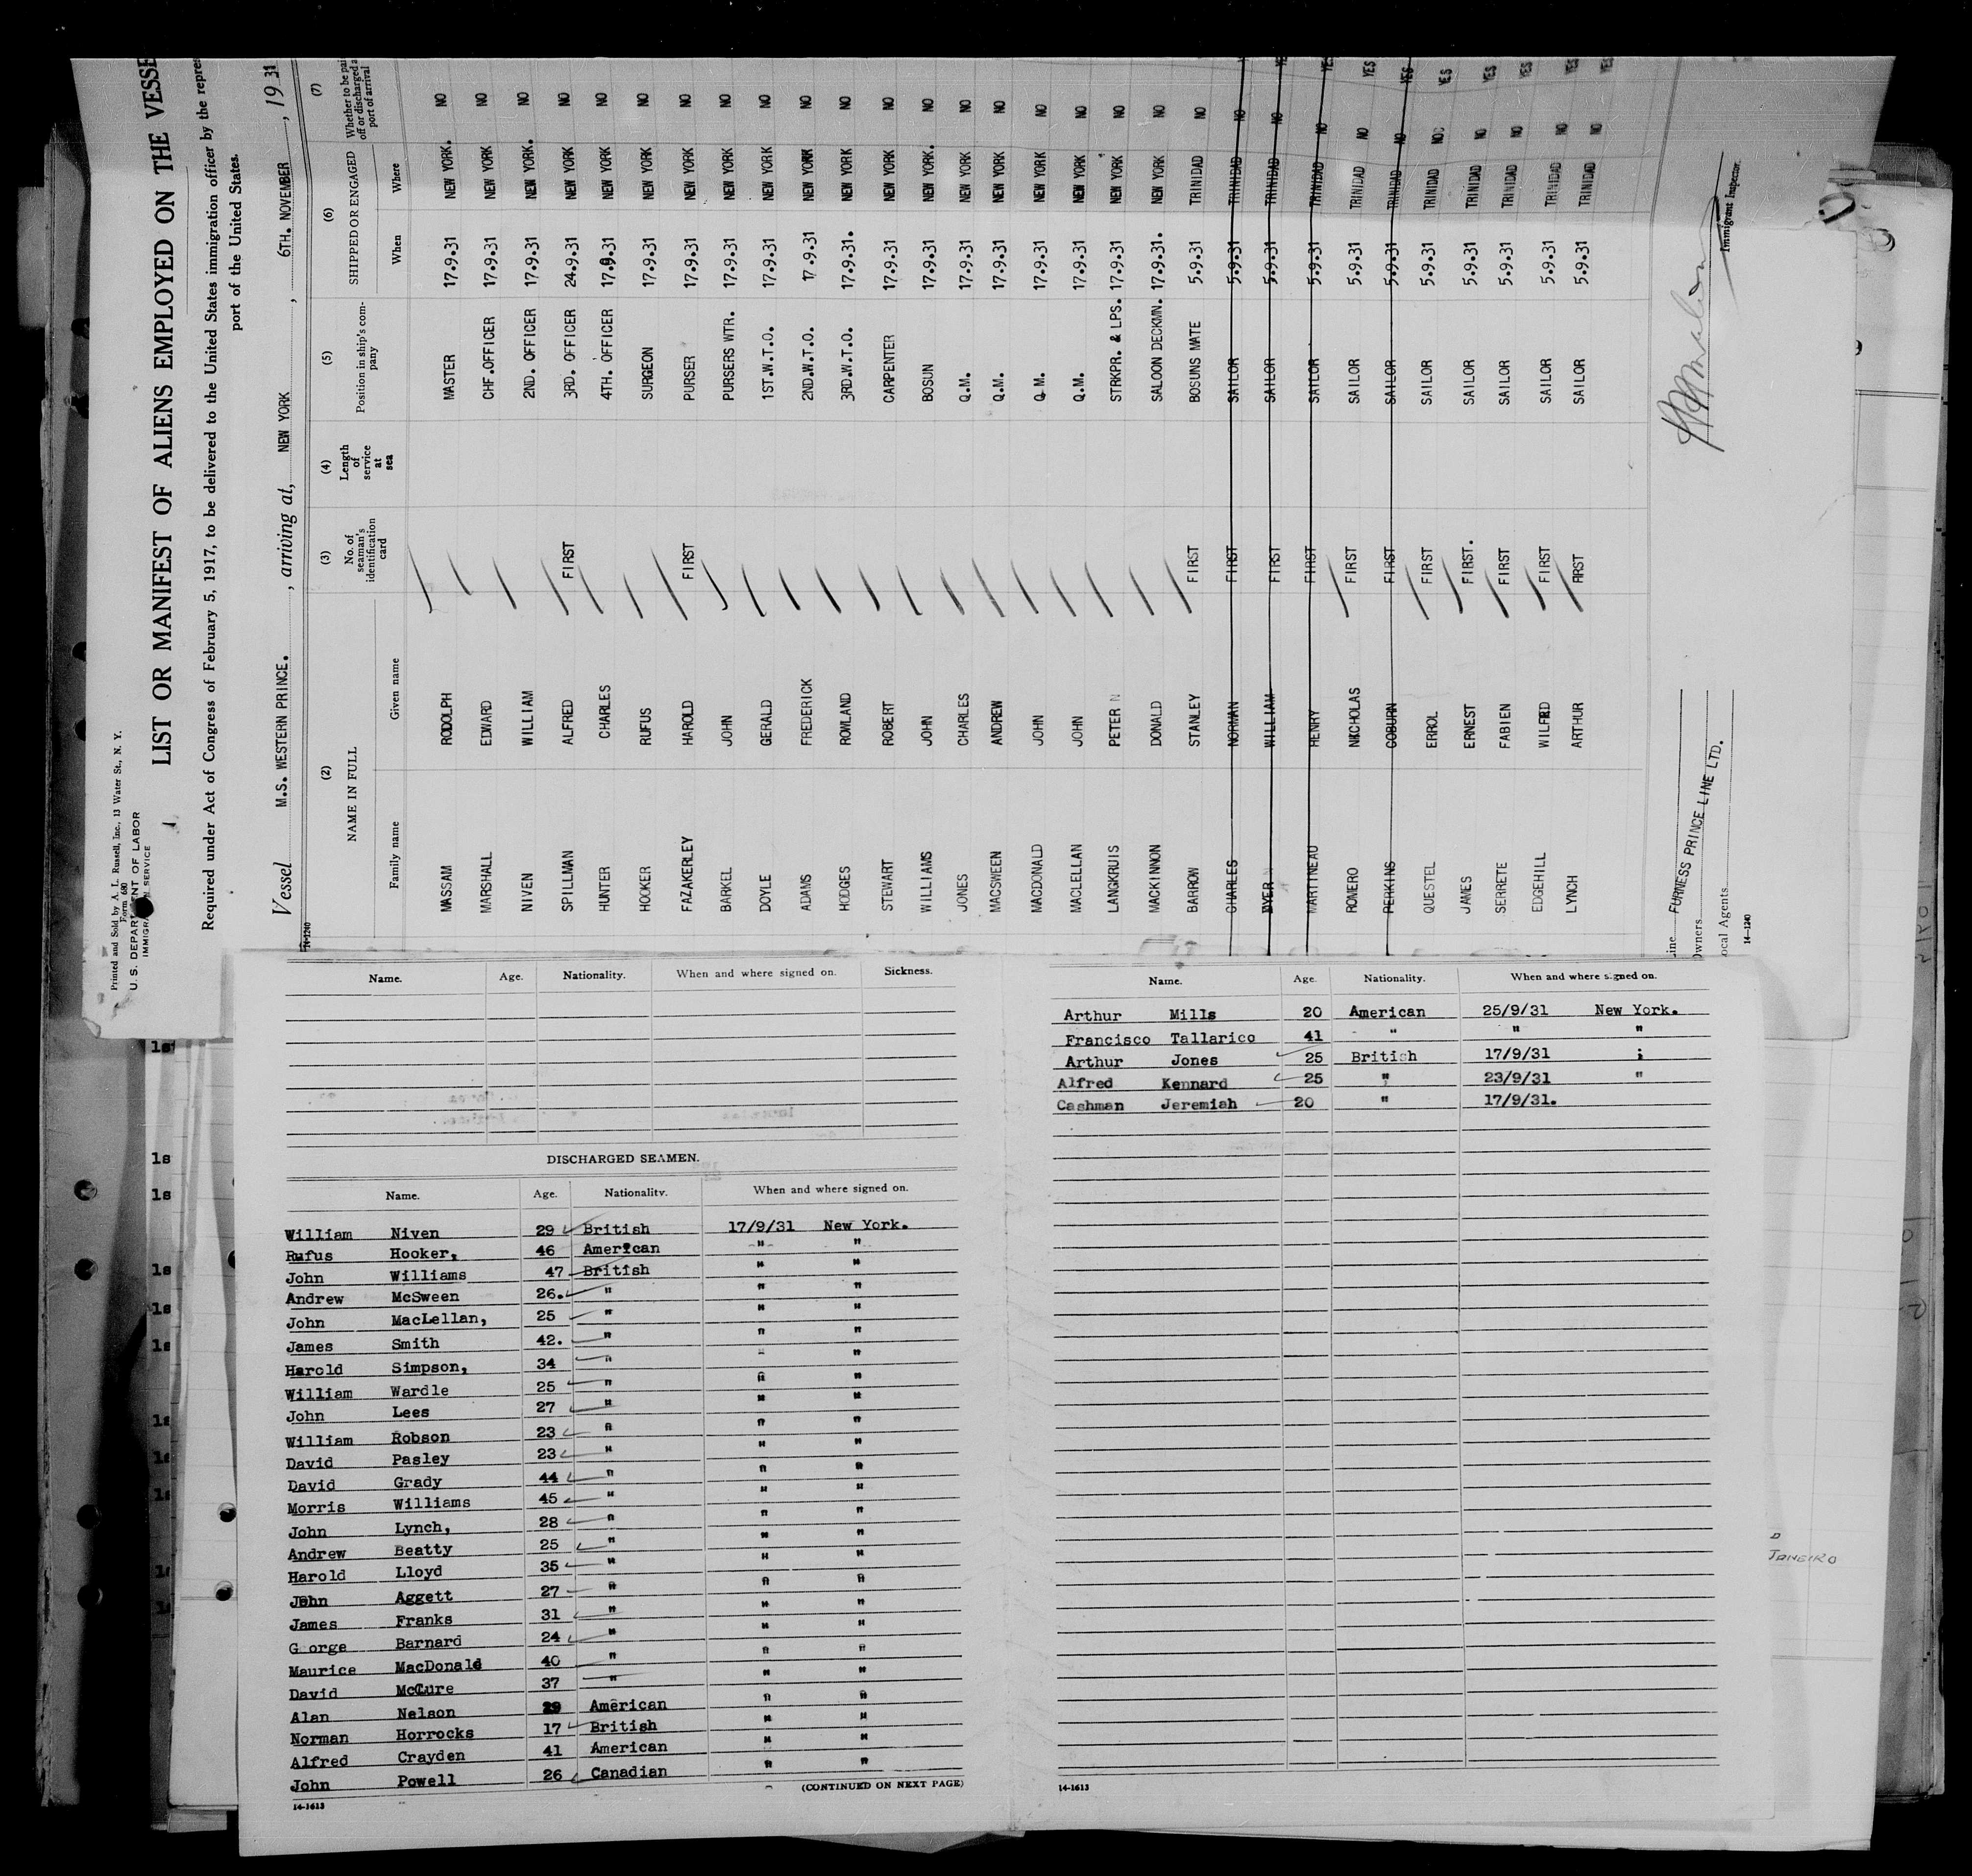 Printed and Sold by A. L. Russell, Inc., 13 Water St., N. Y.
Form 680
U. S. DEPARTMENT OF LABOR
IMMIGRATION SERVICE
LIST OR MANIFEST OF ALIENS EMPLOYED ON THE VESSE
Required under Act of Congress of February 5, 1917, to be delivered to the United States immigration officer by the repres
port of the United States.
Vessel M.S. WESTERN PRINCE. , arriving at, NEW YORK , 6TH. NOVEMBER , 19 31
14-1240
(2) (3) (4) (5) (6) (7)
NAME IN FULL No. of seaman's identification card Length of service at sea Position in ship's com-pany SHIPPED OR ENGAGED Whether to be pai off or discharged a port of arrival
Family name Given name When Where
MASSAM RODOLPH MASTER 17.9.31 NEW YORK. NO
MARSHALL EDWARD CHF.OFFICER 17.9.31 NEW YORK NO
NIVEN WILLIAM 2ND. OFFICER 17.9.31 NEW YORK. NO
SPILLMAN ALFRED FIRST 3RD. OFFICER 24.9.31 NEW YORK NO
HUNTER CHARLES 4TH. OFFICER 17.9.31 NEW YORK NO
HOOKER RUFUS SURGEON 17.9.31 NEW YORK NO
FAZAKERLEY HAROLD FIRST PURSER 17.9.31 NEW YORK NO
BARKEL JOHN PURSERS WTR. 17.9.31 NEW YORK NO
DOYLE GERALD 1ST.W.T.O. 17.9.31 NEW YORK NO
ADAMS FREDERICK 2ND.W.T.O. 17.9.31 NEW YORK NO
HODGES ROWLAND 3RD.W.T.O. 17.9.31. NEW YORK NO
STEWART ROBERT CARPENTER 17.9.31 NEW YORK NO
WILLIAMS JOHN BOSUN 17.9.31 NEW YORK. NO
JONES CHARLES Q.M. 17.9.31 NEW YORK NO
MACSWEEN ANDREW Q.M. 17.9.31 NEW YORK NO
MACDONALD JOHN Q M. 17.9.31 NEW YORK NO
MACLELLAN JOHN Q.M. 17.9.31 NEW YORK NO
LANGKRUIS PETER N STRKPR. & LPS. 17.9.31 NEW YORK NO
MACKINNON DONALD SALOON DECKMN. 17.9.31. NEW YORK NO
BARROW STANLEY FIRST BOSUNS MATE 5.9.31 TRINIDAD NO
CHARLES NORMAN FIRST SAILOR 5.9.31 TRINIDAD NO YES
DYER WILLIAM FIRST SAILOR 5.9.31 TRINIDAD NO YES
MARTINEAU HENRY FIRST SAILOR 5.9.31 TRINIDAD NO YES
ROMERO NICHOLAS FIRST SAILOR 5.9.31 TRINIDAD NO YES
PERKINS COBURN FIRST SAILOR 5.9.31 TRINIDAD NO YES
QUESTEL ERROL FIRST SAILOR 5.9.31 TRINIDAD NO YES
JAMES ERNEST FIRST. SAILOR 5.9.31 TRINIDAD NO YES
SERRETE FABIEN FIRST SAILOR 5.9.31 TRINIDAD NO YES
EDGEHILL WILFRED FIRST SAILOR 5.9.31 TRINIDAD NO YES
LYNCH ARTHUR FIRST SAILOR 5.9.31 TRINIDAD NO YES
ine FURNESS PRINCE LINE LTD.
Owners
ocal Agents
14-1240
Immigrant Inspector.
Name. Age. Nationality. When and where signed on. Sickness.
DISCHARGED SEAMEN.
Name. Age. Nationality. When and where signed on.
William Niven 29 British 17/9/31 New York.
Rufus Hooker, 46 American " "
John Williams 47 British " "
Andrew McSween 26. " " "
John MacLellan, 25 " " "
James Smith 42. " " "
Harold Simpson, 34 " " "
William Wardle 25 " " "
John Lees 27 " " "
William Robson 23 " " "
David Pasley 23 " " "
David Grady 44 " " "
Morris Williams 45 " " "
John Lynch, 28 " " "
Andrew Beatty 25 " " "
Harold Lloyd 35 " " "
John Aggett 27 " " "
James Franks 31 " " "
G orge Barnard 24 " " "
Maurice MacDonald 40 " " "
David McCure 37 " " "
Alan Nelson 29 American " "
Norman Horrocks 17 British " "
Alfred Crayden 41 American " "
John Powell 26 Canadian " "
(CONTINUED ON NEXT PAGE)
14-1613
Name. Age. Nationality. When and where signed on.
Arthur Mills 20 American 25/9/31 New York.
Francisco Tallarico 41 " " "
Arthur Jones 25 British 17/9/31 ;
Alfred Kennard 25 " 23/9/31 "
Cashman Jeremiah 20 " 17/9/31.
14-1613
JANEIRO